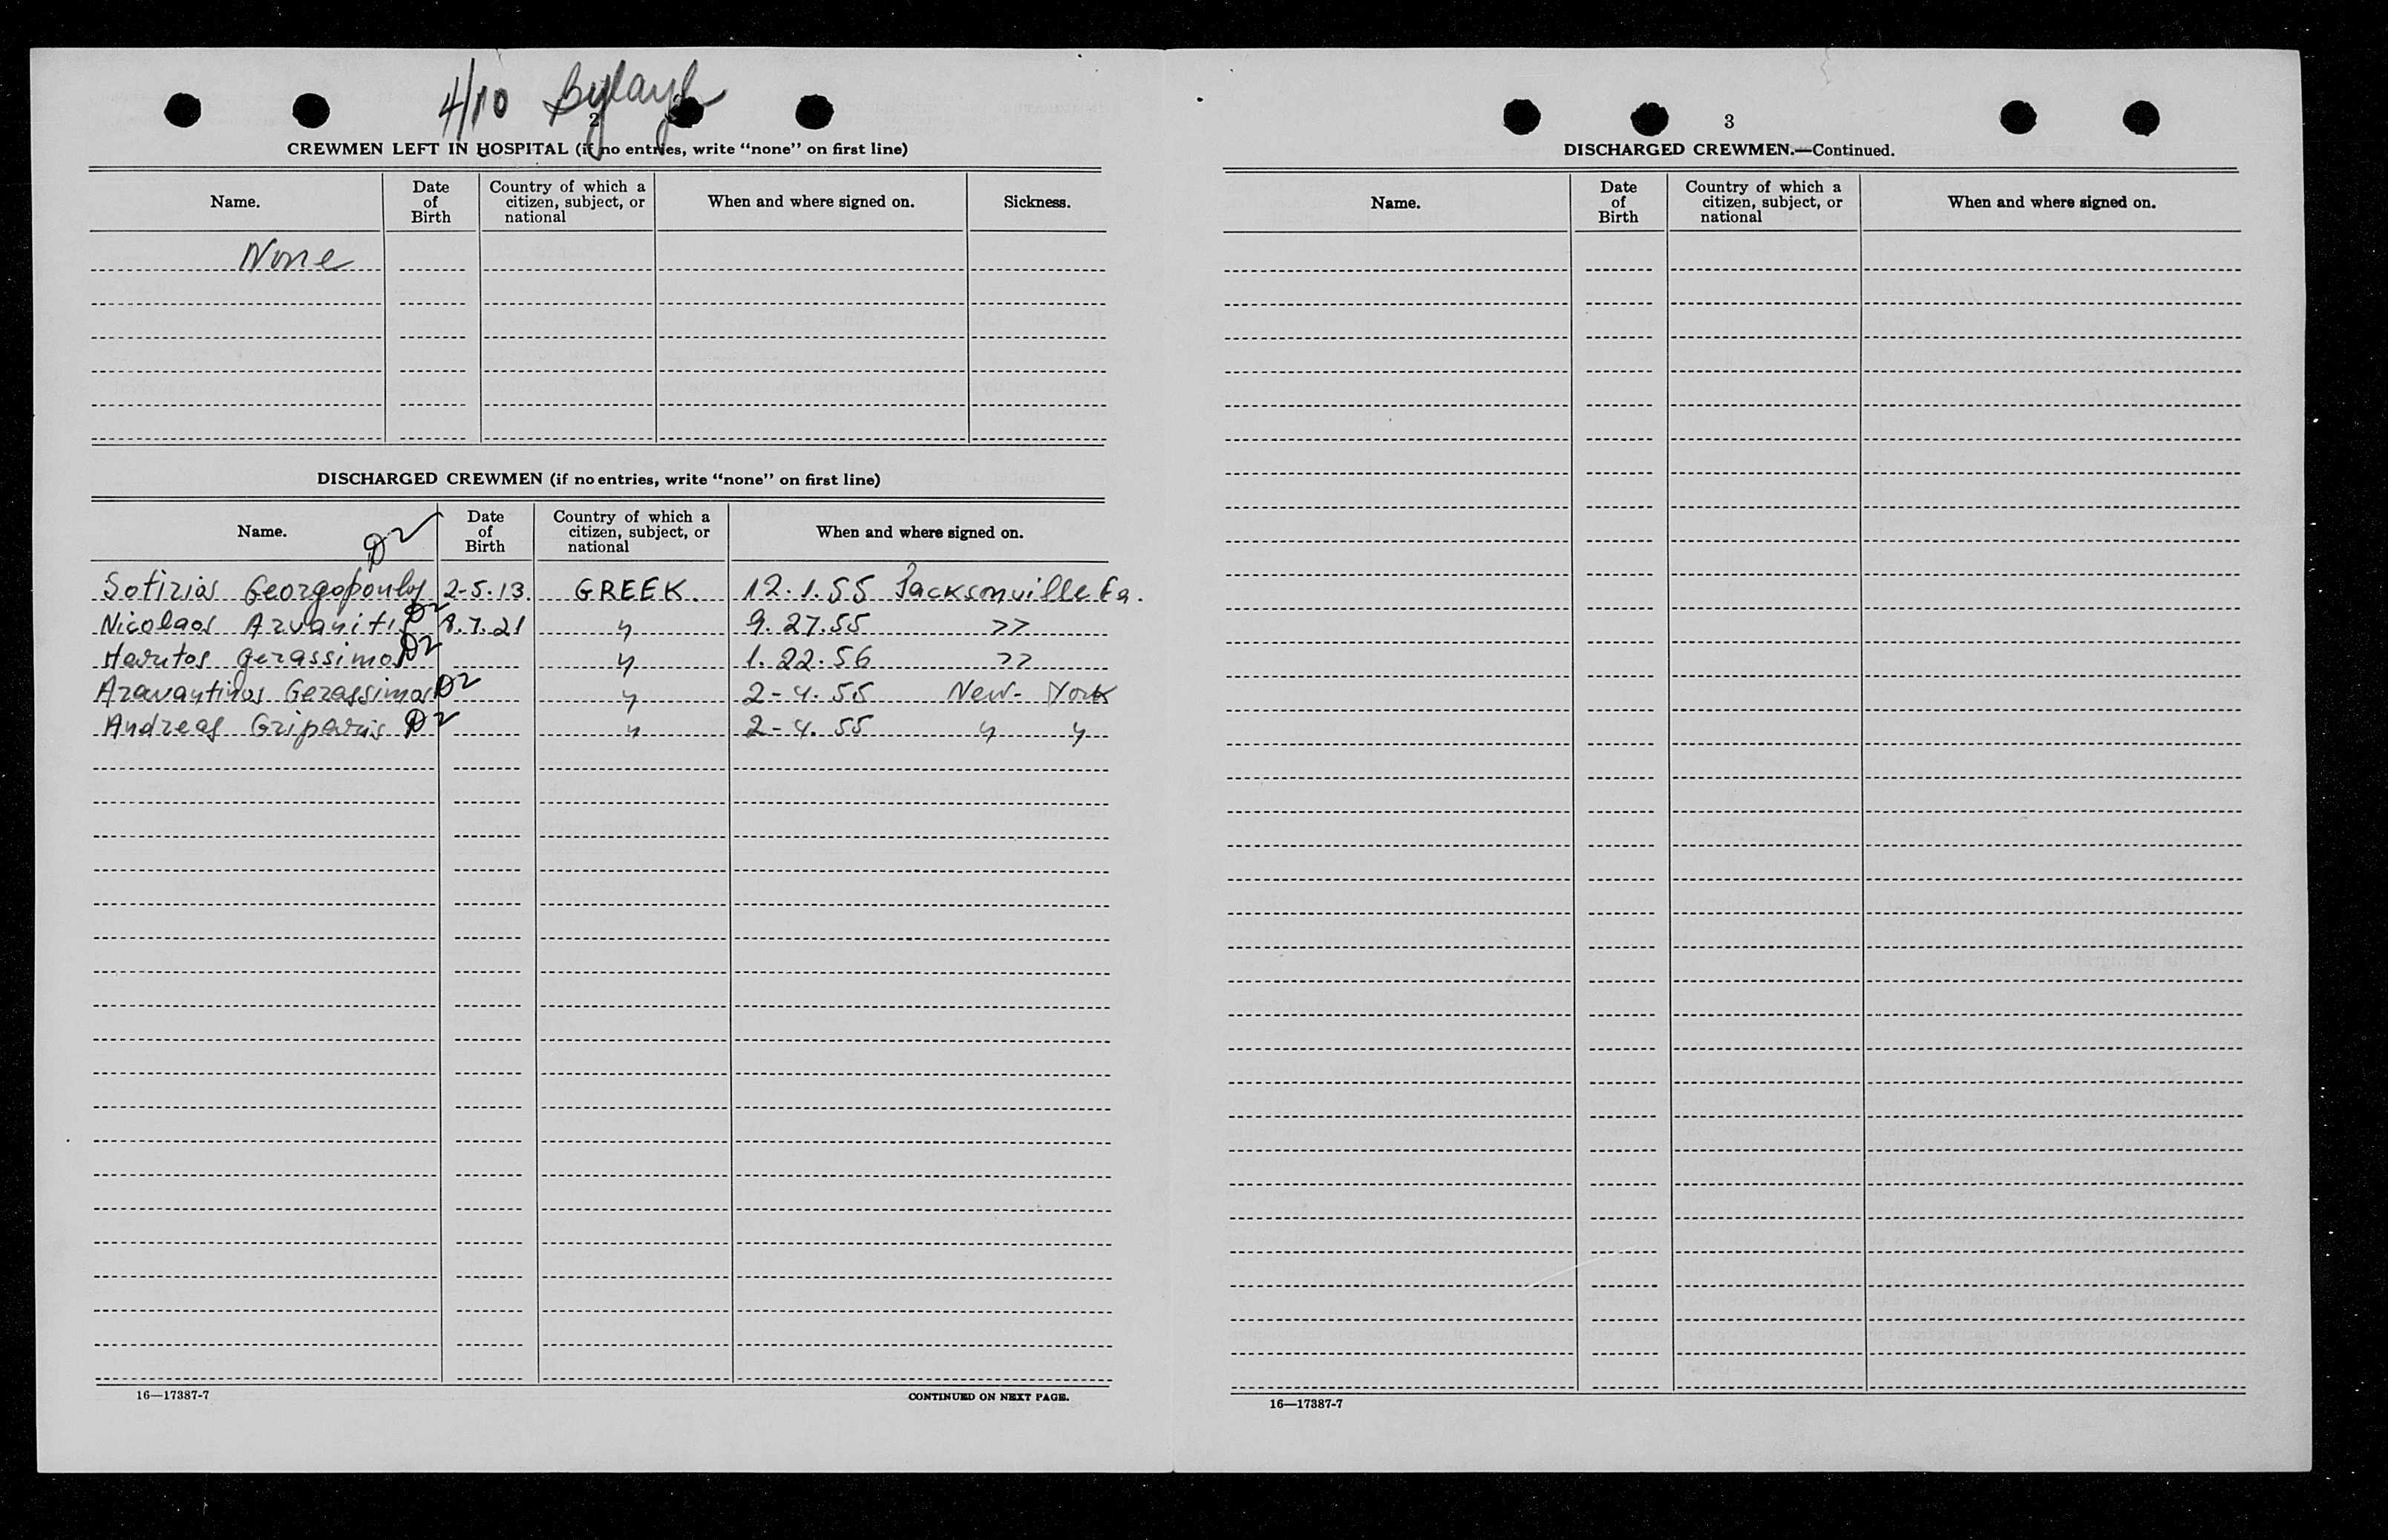 4/10
2
CREWMEN LEFT IN HOSPITAL (if no entries, write “none” on first line)
Name. Date of Birth Country of which a citizen, subject, or national When and where signed on. Sickness.
None
DISCHARGED CREWMEN (if no entries, write “none” on first line)
Name. Date of Birth Country of which a citizen, subject, or national When and where signed on.
D2
Sotirios Georgopoulos 2-5.13. GREEK. 12.1.55 Jacksonville
Nicolaos Arvanitis D2 8.7.21 " 9.27.55 >>
Gerassimos D2 " 1.22.56 >>
Aravantinos Gerassimos D2 " 2-4.55 New-York
Andreas Griparis D2 " 2-4.55 " "
16—17387-7
CONTINUED ON NEXT PAGE.
3
DISCHARGED CREWMEN.—Continued.
Name. Date of Birth Country of which a citizen, subject, or national When and where signed on.
16—17387-7